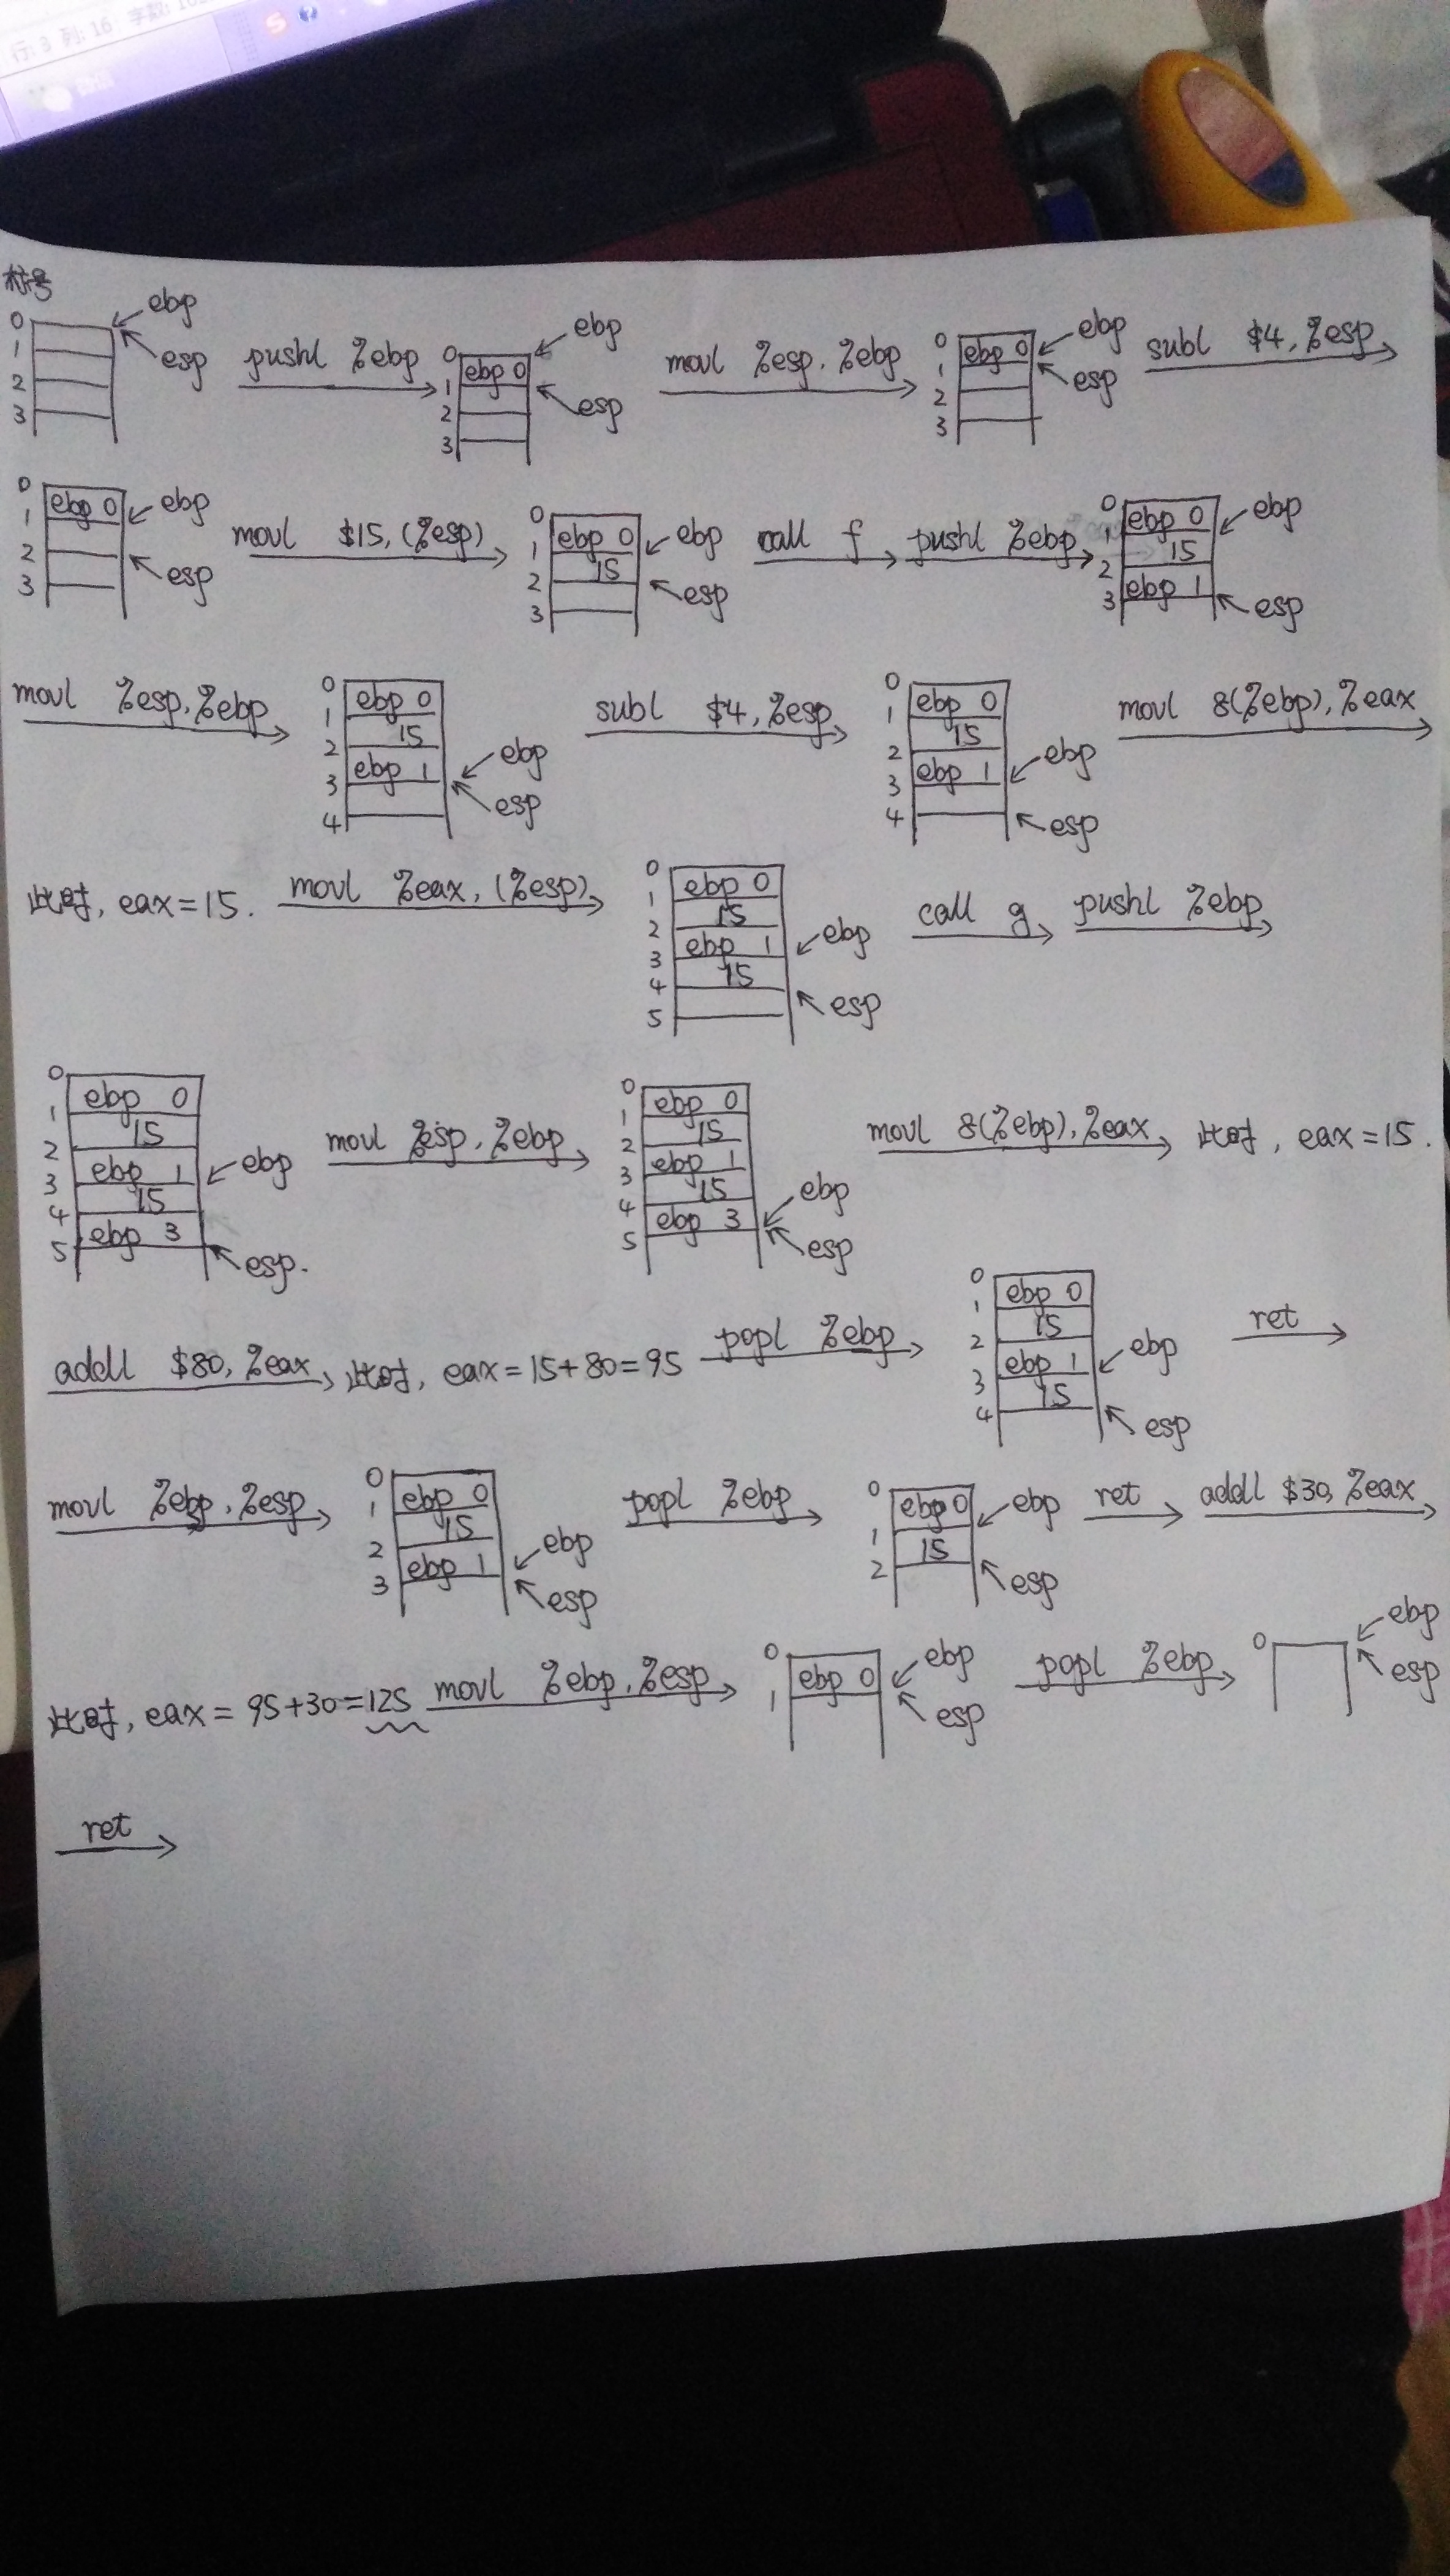 行: 3 列: 16 字数:
标号
0 ebp
1 esp pushl %ebp 0 ebp 0 ebp movl %esp, %ebp 0 ebp 0 ebp subl $4, %esp
2 1 esp 1 esp
3 2 2
3 3
0 ebp 0 ebp movl $15, (%esp) 0 ebp 0 ebp call f pushl %ebp 0 ebp 0 ebp
1 1 15 1 15
2 esp 2 esp 2 ebp 1
3 3 3 esp
movl %esp, %ebp 0 ebp 0 subl $4, %esp 0 ebp 0 movl 8(%ebp), %eax
1 15 1 15
2 ebp 1 ebp 2 ebp 1 ebp
3 esp 3
4 4 esp
此时, eax=15. movl %eax, (%esp) 0 ebp 0 call g pushl %ebp
1 15
2 ebp 1 ebp
3 15
4 esp
5
0 ebp 0 movl %esp, %ebp 0 ebp 0 movl 8(%ebp), %eax 此时, eax=15.
1 15 1 15
2 ebp 1 ebp 2 ebp 1
3 15 3 15 ebp
4 ebp 3 4 ebp 3
5 esp. 5 esp
addl $80, %eax 此时, eax=15+80=95 popl %ebp 0 ebp 0 ret
1 15
2 ebp 1 ebp
3 15
4 esp
movl %ebp, %esp 0 ebp 0 popl %ebp 0 ebp 0 ebp ret addl $30, %eax
1 15 1 15
2 ebp 1 ebp 2 esp
3 esp
此时, eax = 95+30=125 movl %ebp, %esp 0 ebp 0 ebp popl %ebp 0 ebp
1 esp esp
ret